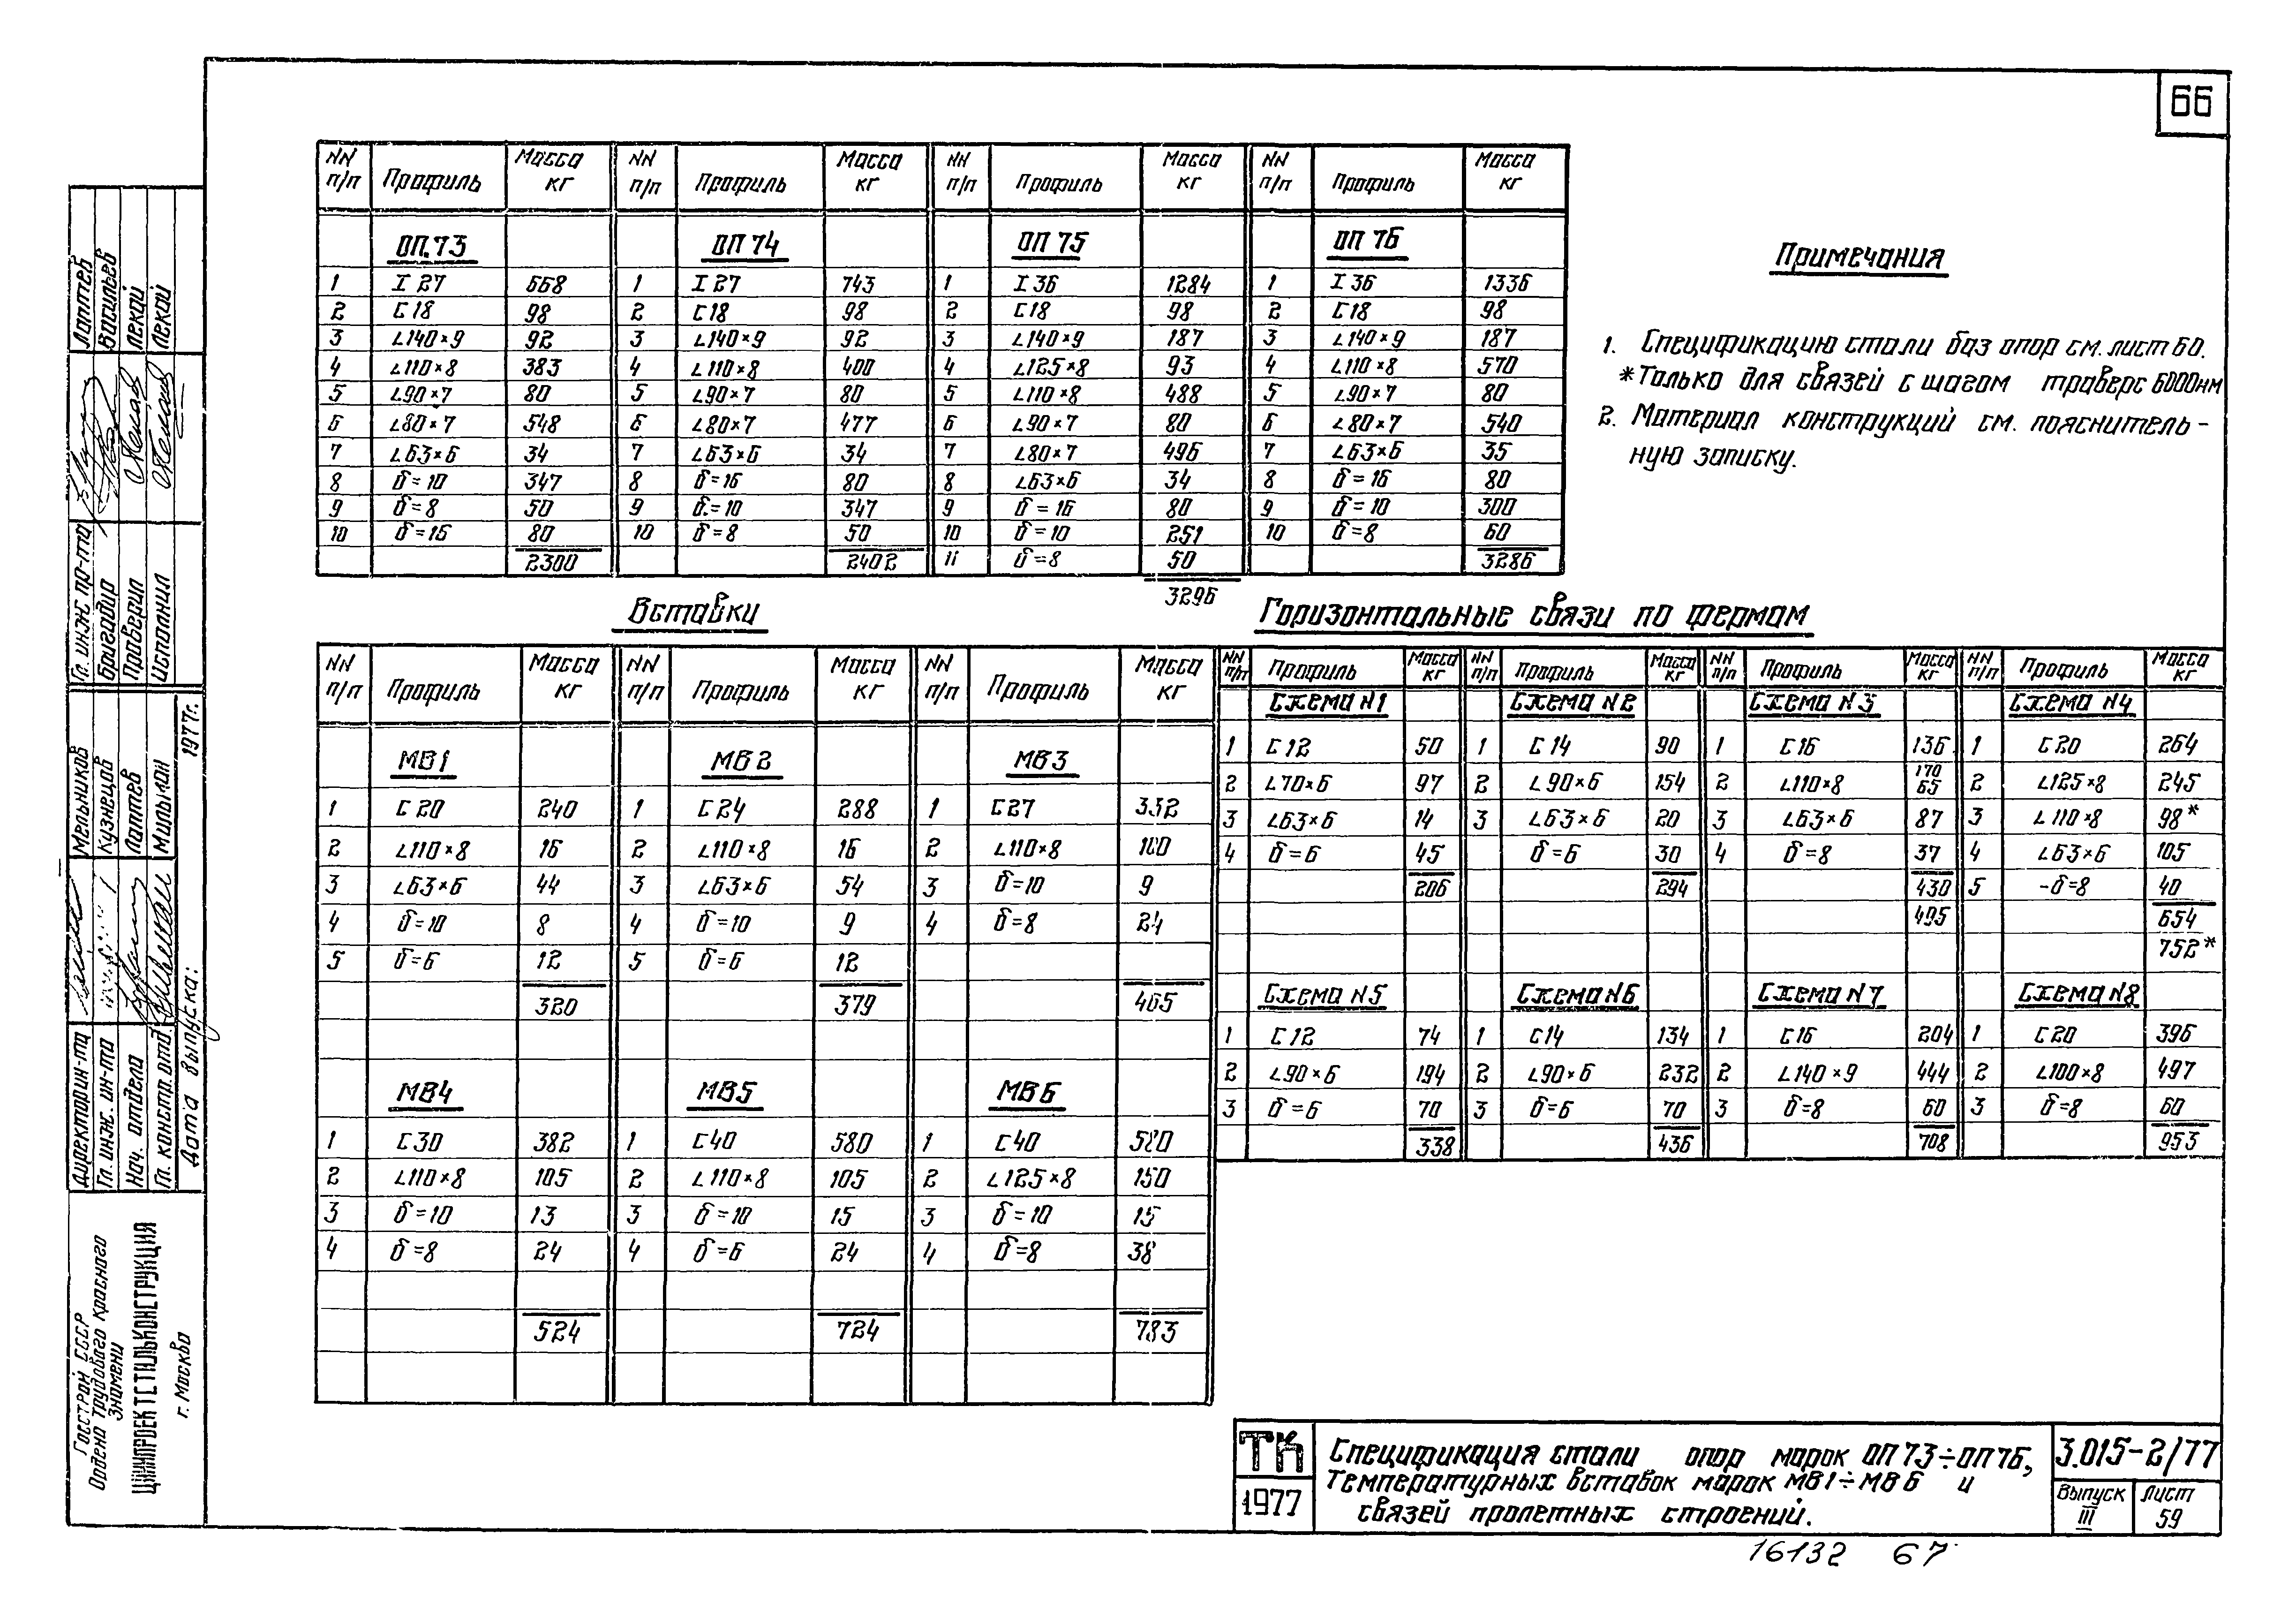 66
NN п/п Профиль Масса кг NN п/п Профиль Масса кг NN п/п Профиль Масса кг NN п/п Профиль Масса кг
ОП.73 ОП 74 ОП 75 ОП 76
1 I 27 668 1 I 27 743 1 I 36 1284 1 I 36 1336
2 [ 18 98 2 [ 18 98 2 [ 18 98 2 [ 18 98
3 ∟140×9 92 3 ∟140×9 92 3 ∟140×9 187 3 ∟140×9 187
4 ∟110×8 383 4 ∟110×8 400 4 ∟125×8 93 4 ∟110×8 570
5 ∟90×7 80 5 ∟90×7 80 5 ∟110×8 488 5 ∟90×7 80
6 ∟80×7 548 6 ∟80×7 477 6 ∟90×7 80 6 ∟80×7 540
7 ∟63×6 34 7 ∟63×6 34 7 ∟80×7 496 7 ∟63×6 35
8 δ=10 347 8 δ=16 80 8 ∟63×6 34 8 δ=16 80
9 δ=8 50 9 δ=10 347 9 δ=16 80 9 δ=10 300
10 δ=16 80 10 δ=8 50 10 δ=10 251 10 δ=8 60
2300 2402 11 δ=8 50 3286
3296
Примечания
1. Спецификацию стали баз опор см. лист 60.
*Только для связей с шагом траверс 6000мм
2. Материал конструкций см. пояснитель-
ную записку.
Вставки
NN п/п Профиль Масса кг NN п/п Профиль Масса кг NN п/п Профиль Масса кг
МВ1 МВ2 МВ3
1 [ 20 240 1 [ 24 288 1 [ 27 332
2 ∟110×8 16 2 ∟110×8 16 2 ∟110×8 100
3 ∟63×6 44 3 ∟63×6 54 3 δ=10 9
4 δ=10 8 4 δ=10 9 4 δ=8 24
5 δ=6 12 5 δ=6 12
320 379 465
МВ4 МВ5 МВ6
1 [ 30 382 1 [ 40 580 1 [ 40 580
2 ∟110×8 105 2 ∟110×8 105 2 ∟125×8 150
3 δ=10 13 3 δ=10 15 3 δ=10 15
4 δ=8 24 4 δ=6 24 4 δ=8 38
524 724 783
Горизонтальные связи по фермам
NN п/п Профиль Масса кг NN п/п Профиль Масса кг NN п/п Профиль Масса кг NN п/п Профиль Масса кг
Схема N1 Схема N2 Схема N3 Схема N4
1 [ 12 50 1 [ 14 90 1 [ 16 136 1 [ 20 264
2 ∟70×6 97 2 ∟90×6 154 2 ∟110×8 170 65 2 ∟125×8 245
3 ∟63×6 14 3 ∟63×6 20 3 ∟63×6 87 3 ∟110×8 98*
4 δ=6 45 δ=6 30 4 δ=8 37 4 ∟63×6 105
206 294 430 5 -δ=8 40
495 654
752*
Схема N5 Схема N6 Схема N7 Схема N8
1 [ 12 74 1 [ 14 134 1 [ 16 204 1 [ 20 396
2 ∟90×6 194 2 ∟90×6 232 2 ∟140×9 444 2 ∟100×8 497
3 δ=6 70 3 δ=6 70 3 δ=8 60 3 δ=8 60
338 436 708 953
Гл. инж пр-та Лаптев
Бригадир Васильев
Проверил Лекай
Исполнил Лекай
Директор ин-та Мельников
Гл. инж. ин-та Кузнецов
Нач. отдела Лаптев
Гл. констр. отд.
Дата выпуска: 1977г.
Госстрой СССР
Ордена трудового красного
знамени
ЦНИИПРОЕКТСТАЛЬКОНСТРУКЦИЯ
г. Москва
ТК
1977
Спецификация стали опор марок ОП73÷ОП76,
температурных вставок марок МВ1÷МВ6 и
связей пролетных строений.
3.015-2/77
Выпуск III
Лист 59
16132 67